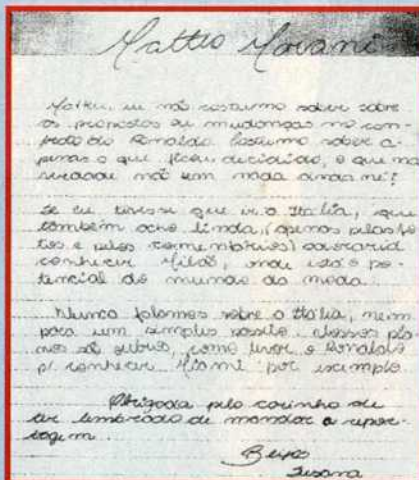 Matteo Morani
Matteu, eu não costumo saber sobre
as propostas ou mudanças no con-
trato do Ronaldo. Costumo saber a-
penas o que ficou decidido, o que na
verdade não tem nada ainda né!
Se eu tivesse que ir a Itália, que
também acho linda, (apenas pelas fo-
tos e pelos comentários) adoraria
conhecer Milão, onde está o po-
tencial do mundo da moda.
Nunca falamos sobre a Itália, nem
para um simples passeio. Nossos pla-
nos são outros, como levar o Ronaldo
p/ conhecer Miami por exemplo.
Obrigada pelo carinho de
ter lembrado de mandar a repor-
tagem.
Beijos
Susana